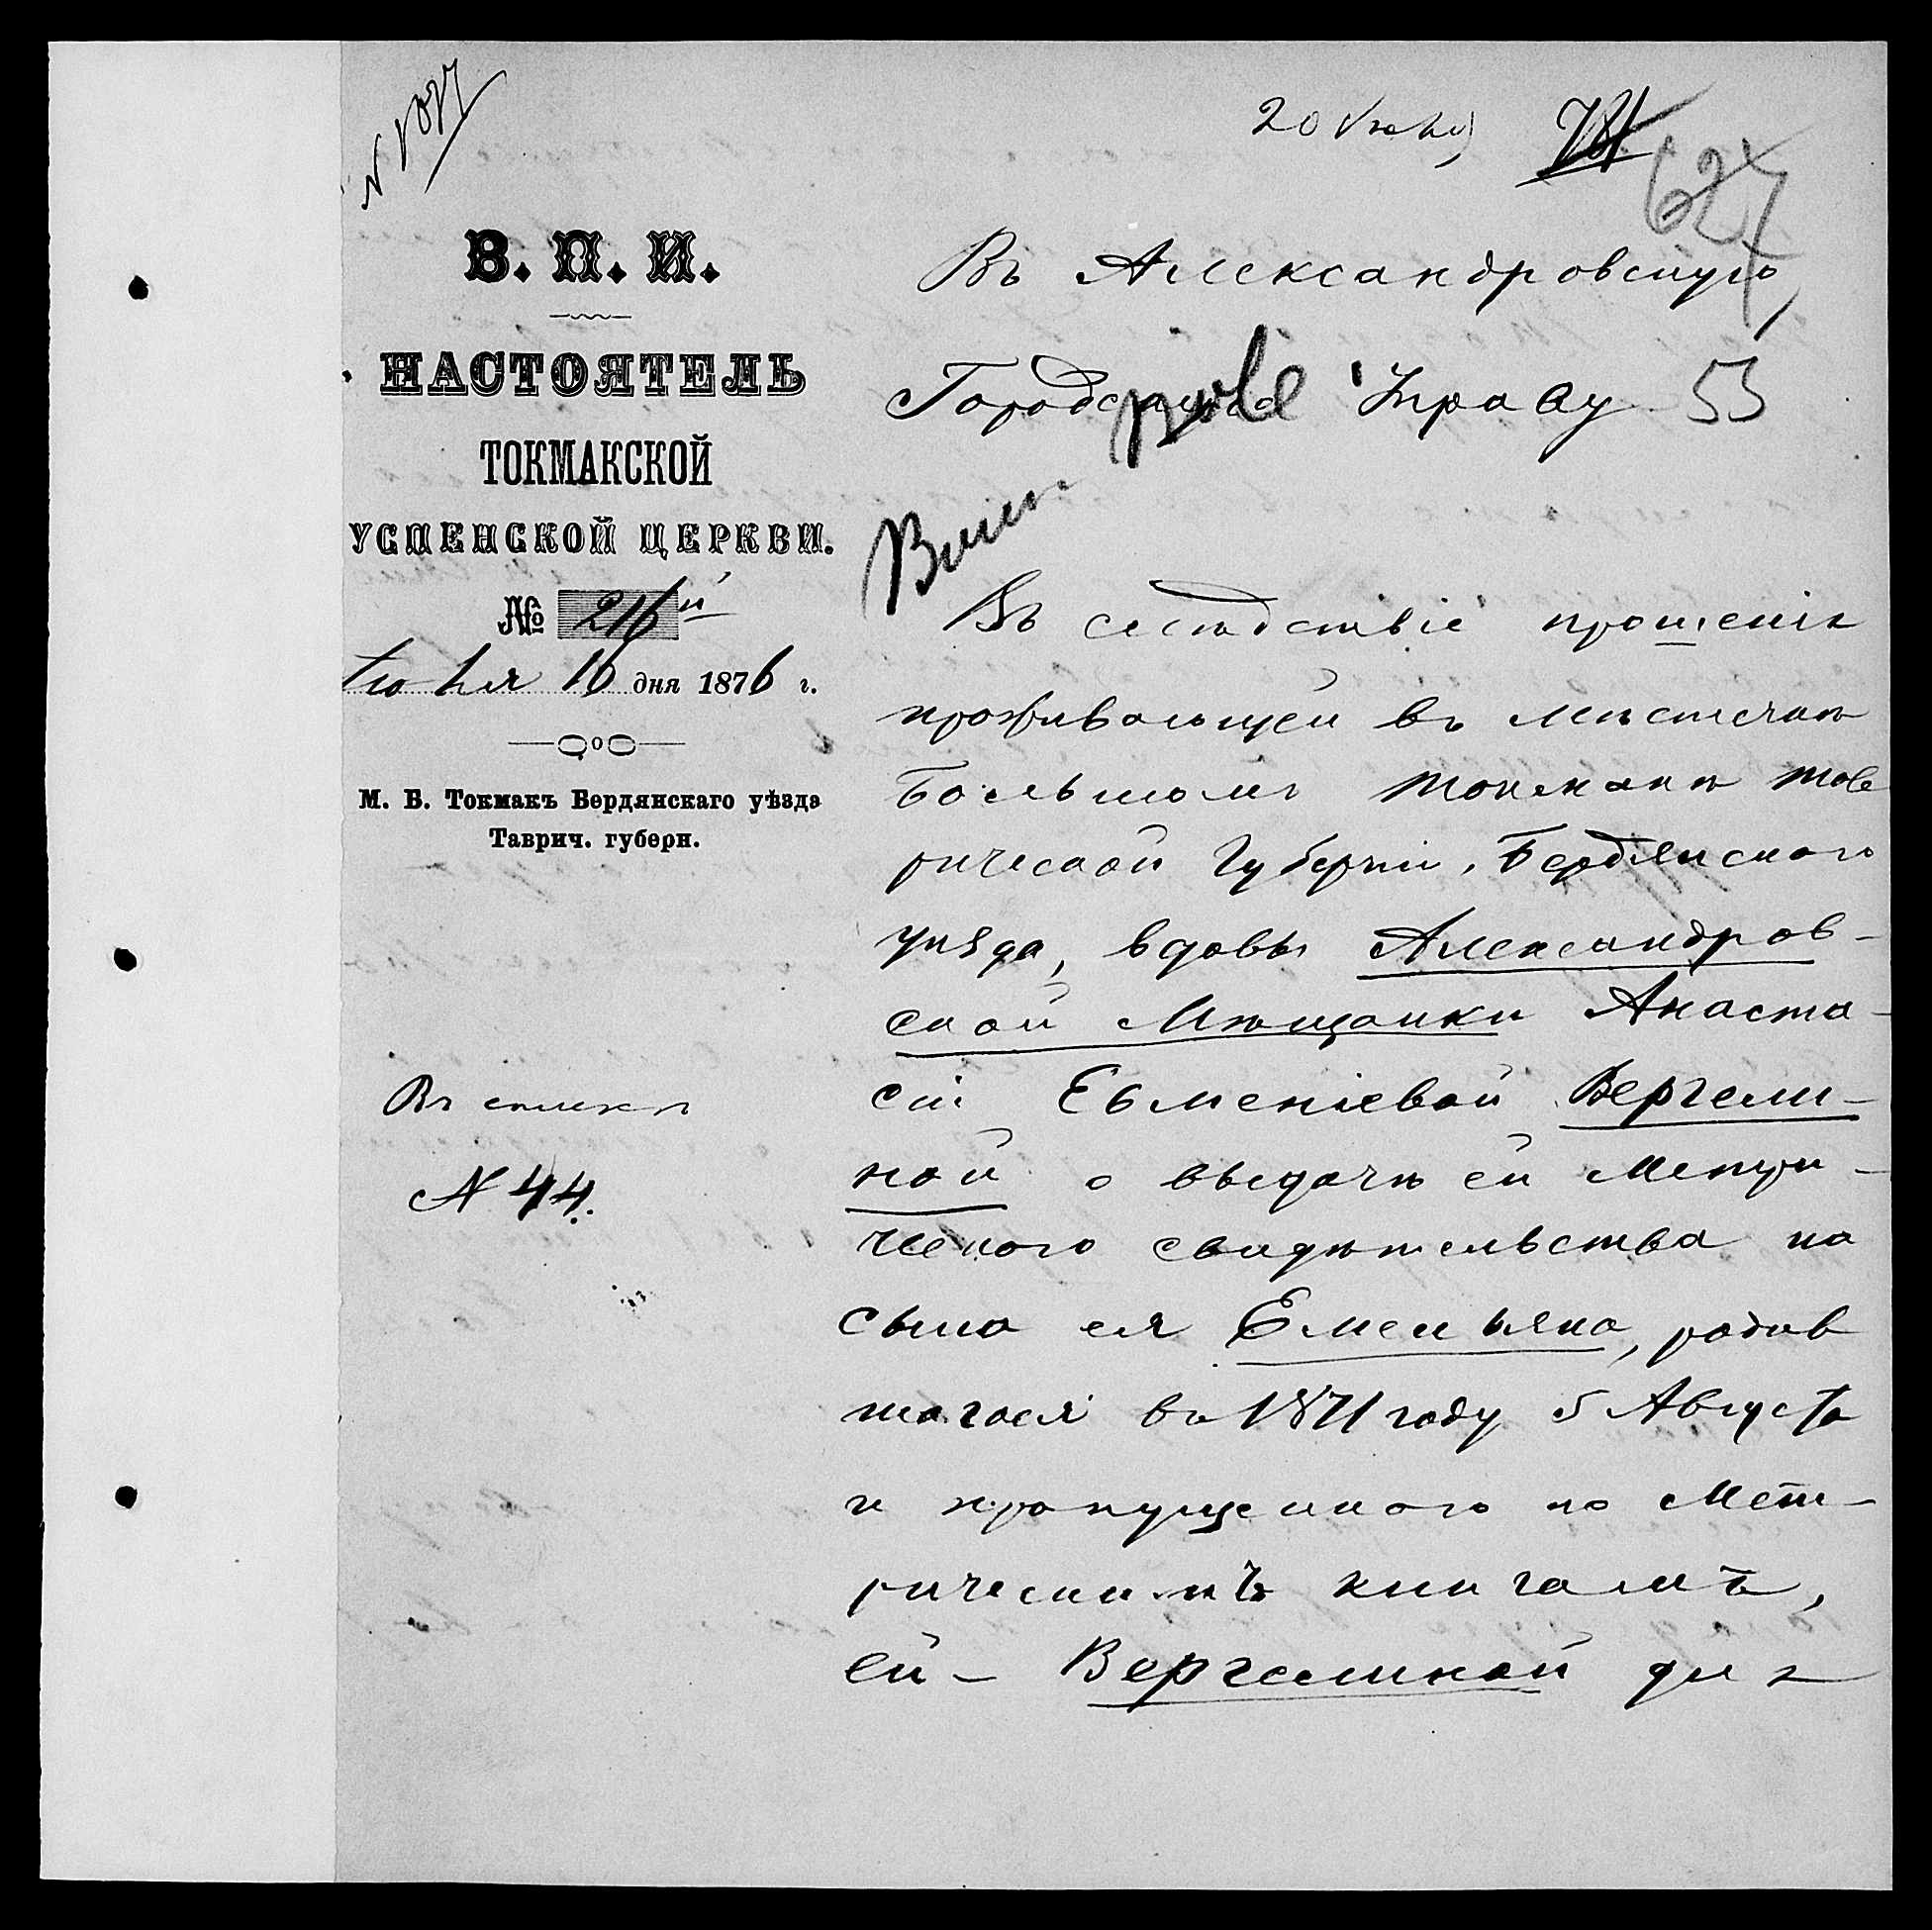 N 1077
20 Июня
627
В. П. И.
НАСТОЯТЕЛЬ
ТОКМАКСКОЙ
УСПЕНСКОЙ ЦЕРКВИ.
№ 216й
Июня 16 дня 1876 г.
М. Б. Токмакъ Бердянскаго уѣзда
Таврич. губерн.
Въ списка
N 44.
Въ Александровскую
Городскую Управу 53
Въ слѣдствіе прошенія
проживающей въ мѣстечкѣ
Большомъ Токмакѣ Тав
рической Губерніи, Бердянскаго
уѣзда, вдовы Александров-
ской Мѣщанки Анаста-
сіи Евменіевой Вергели-
ной о выдачѣ ей Метри-
ческаго свидѣтельства на
сына ея Емельяна, родив
шагося въ 1871 году 5 Августа
и пропущеннаго по Мет-
рическимъ книгамъ,
ей - Вергелиной для